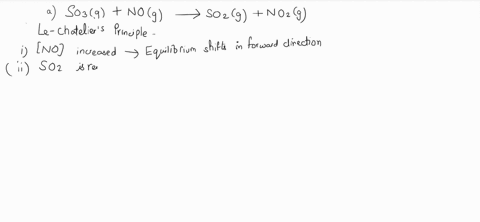 a) SO3(g) + NO(g) ⟶ SO2(g) + NO2(g)
Le-chatelier's Principle -
i) [NO] increased → Equilibrium shifts in forward direction
(ii) SO2 is re